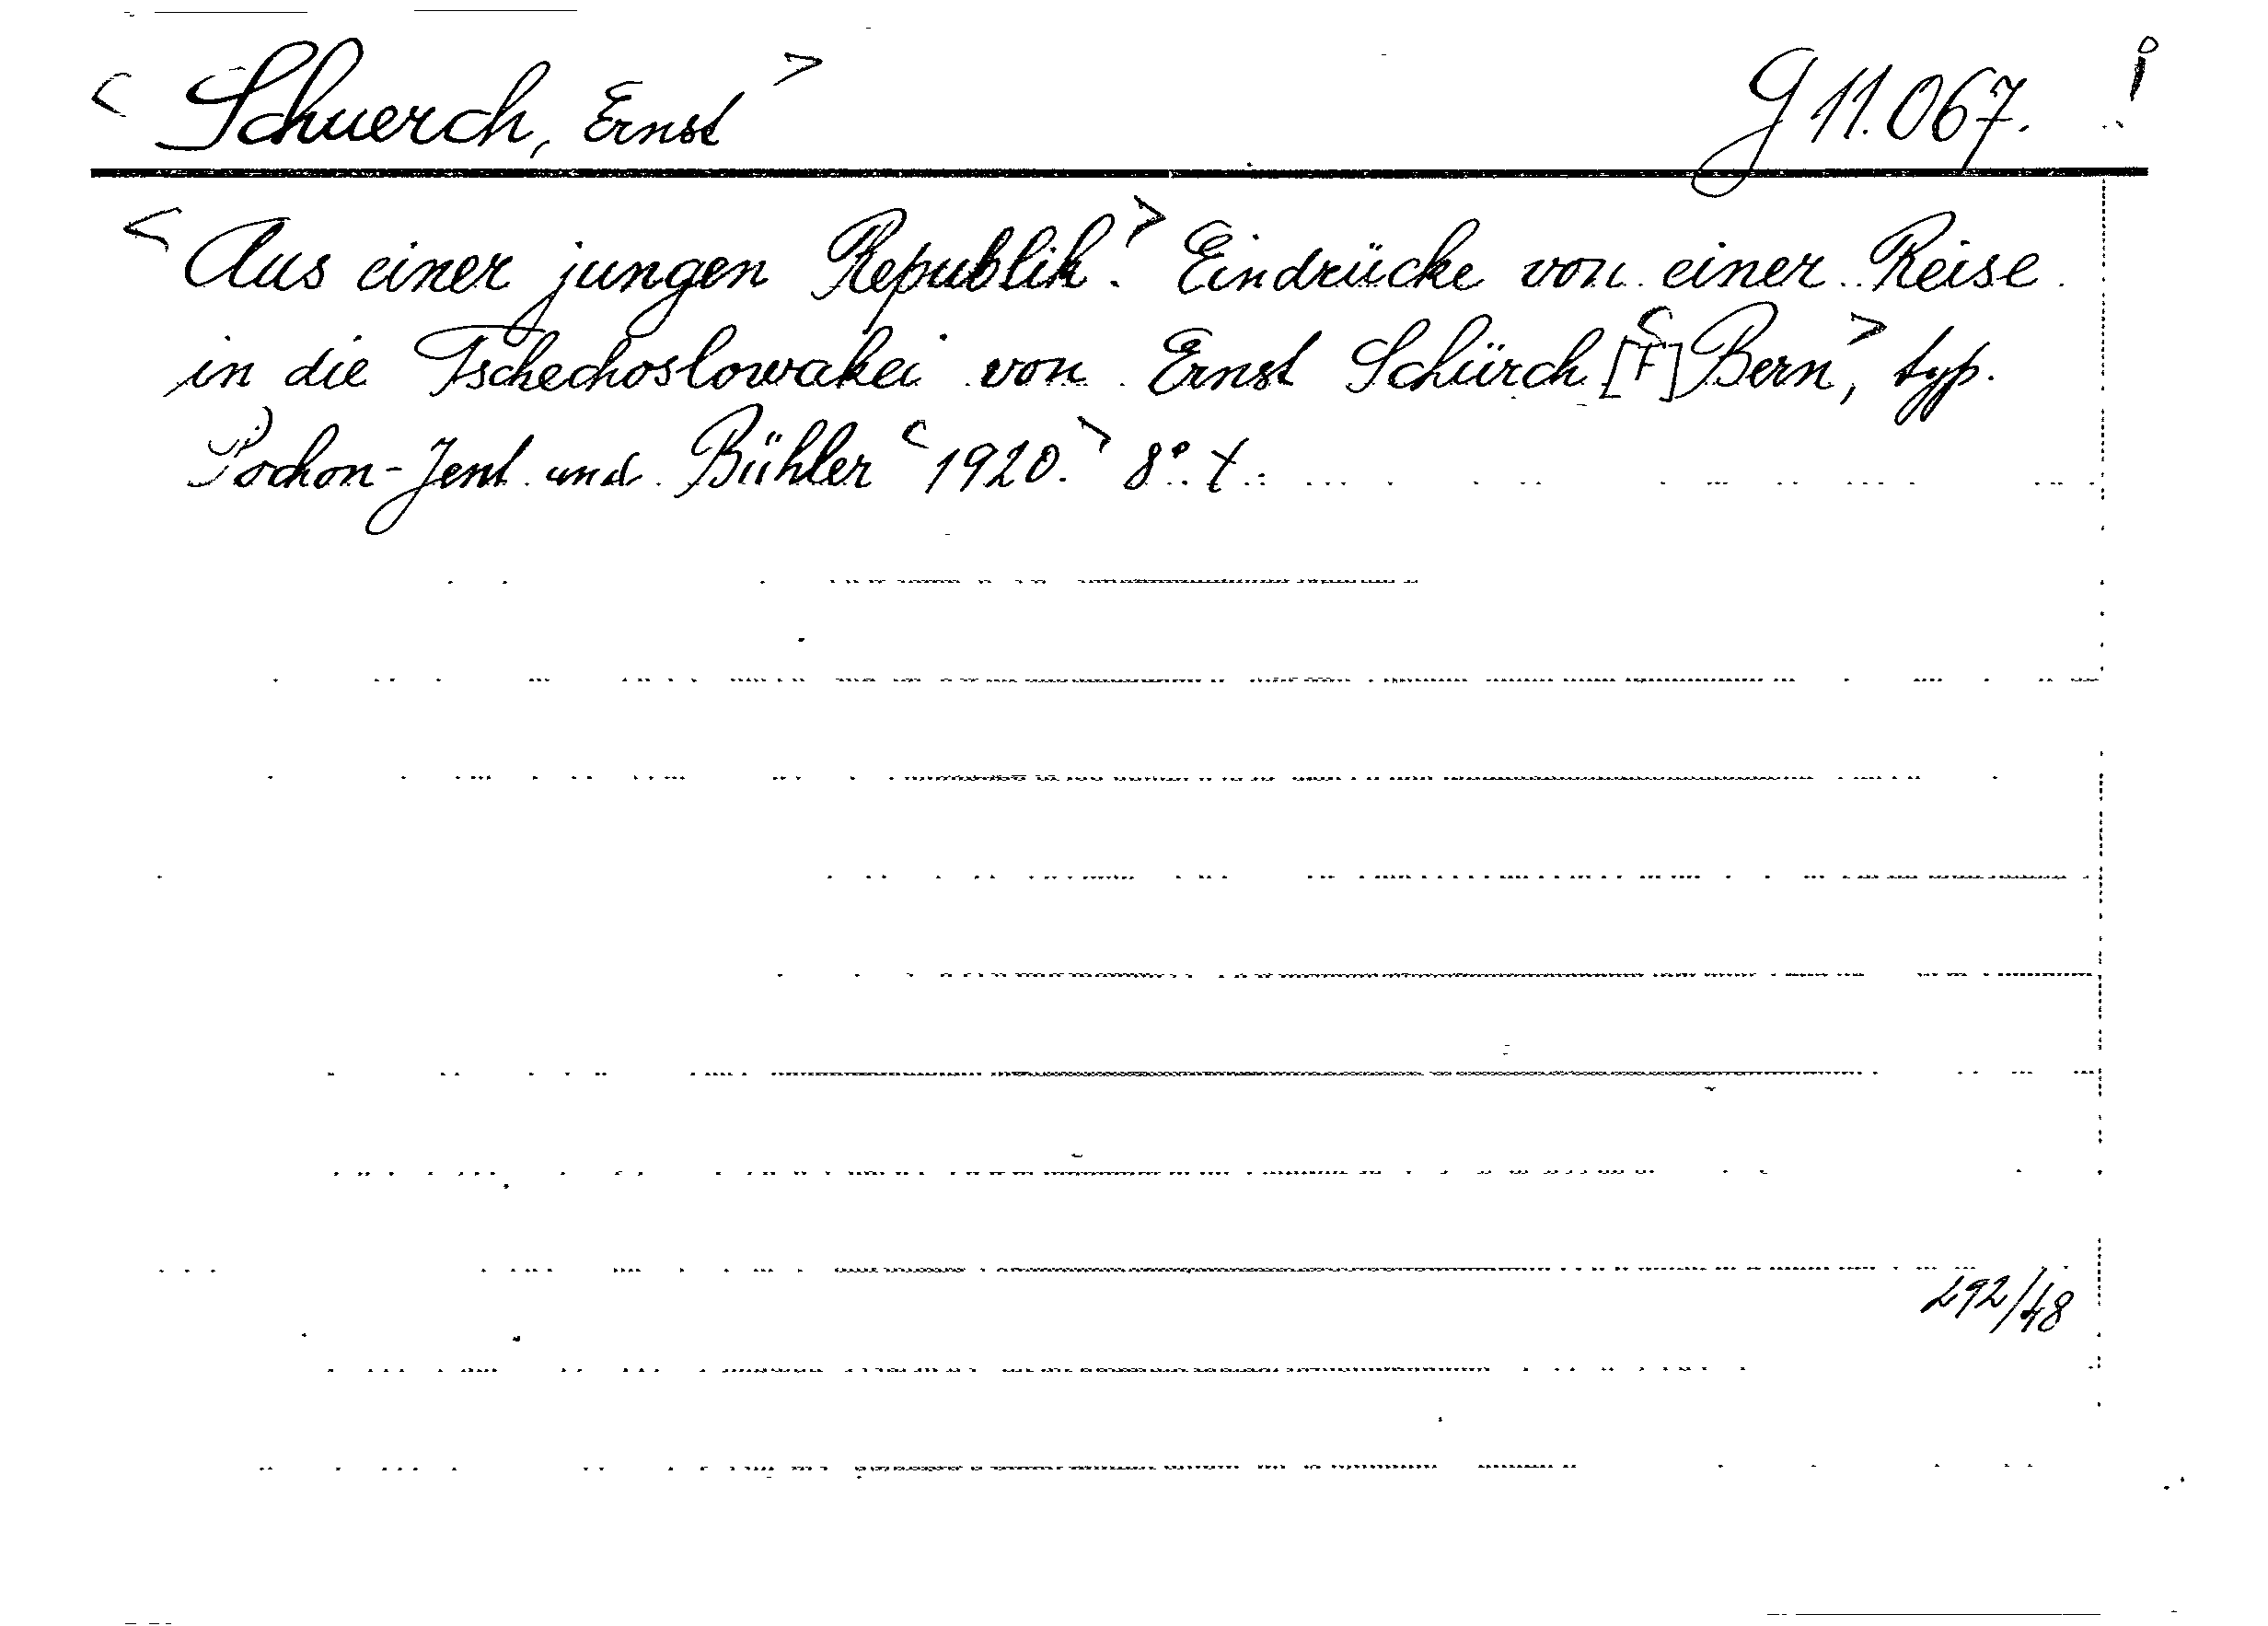 < Schuerch, Ernst > g 11.067. !
< Aus einer jungen Republik. > Eindrücke von einer Reise
in die Tschechoslowakei von Ernst Schürch [F] < Bern >, typ.
Pochon-Jent und Bühler < 1920. > 8°
292/48